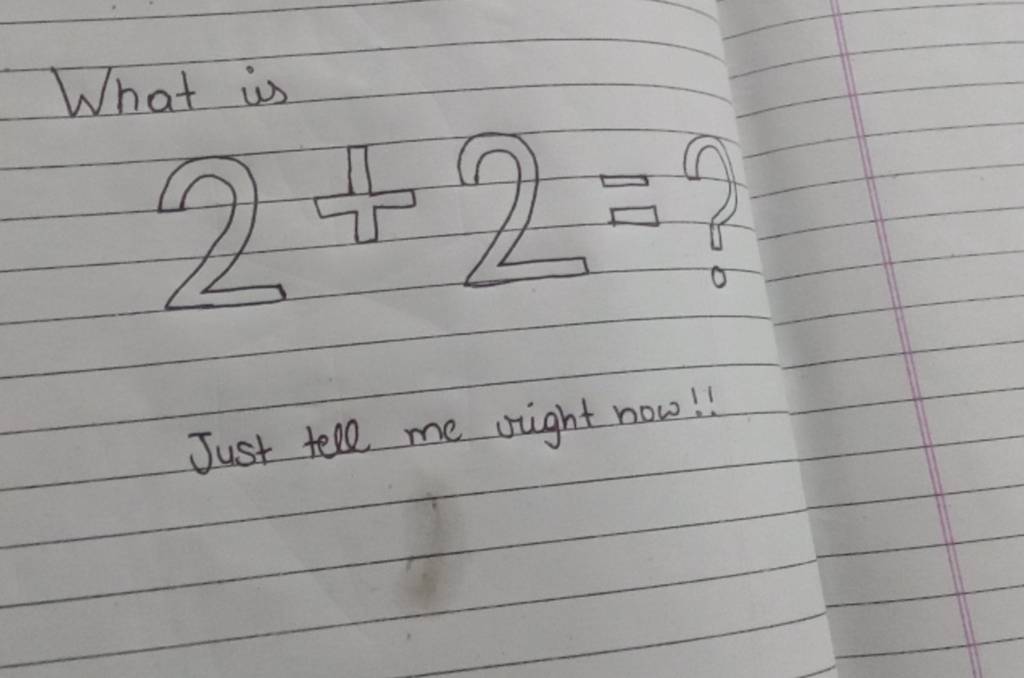 What is
2 + 2 = ?
Just tell me right now!!